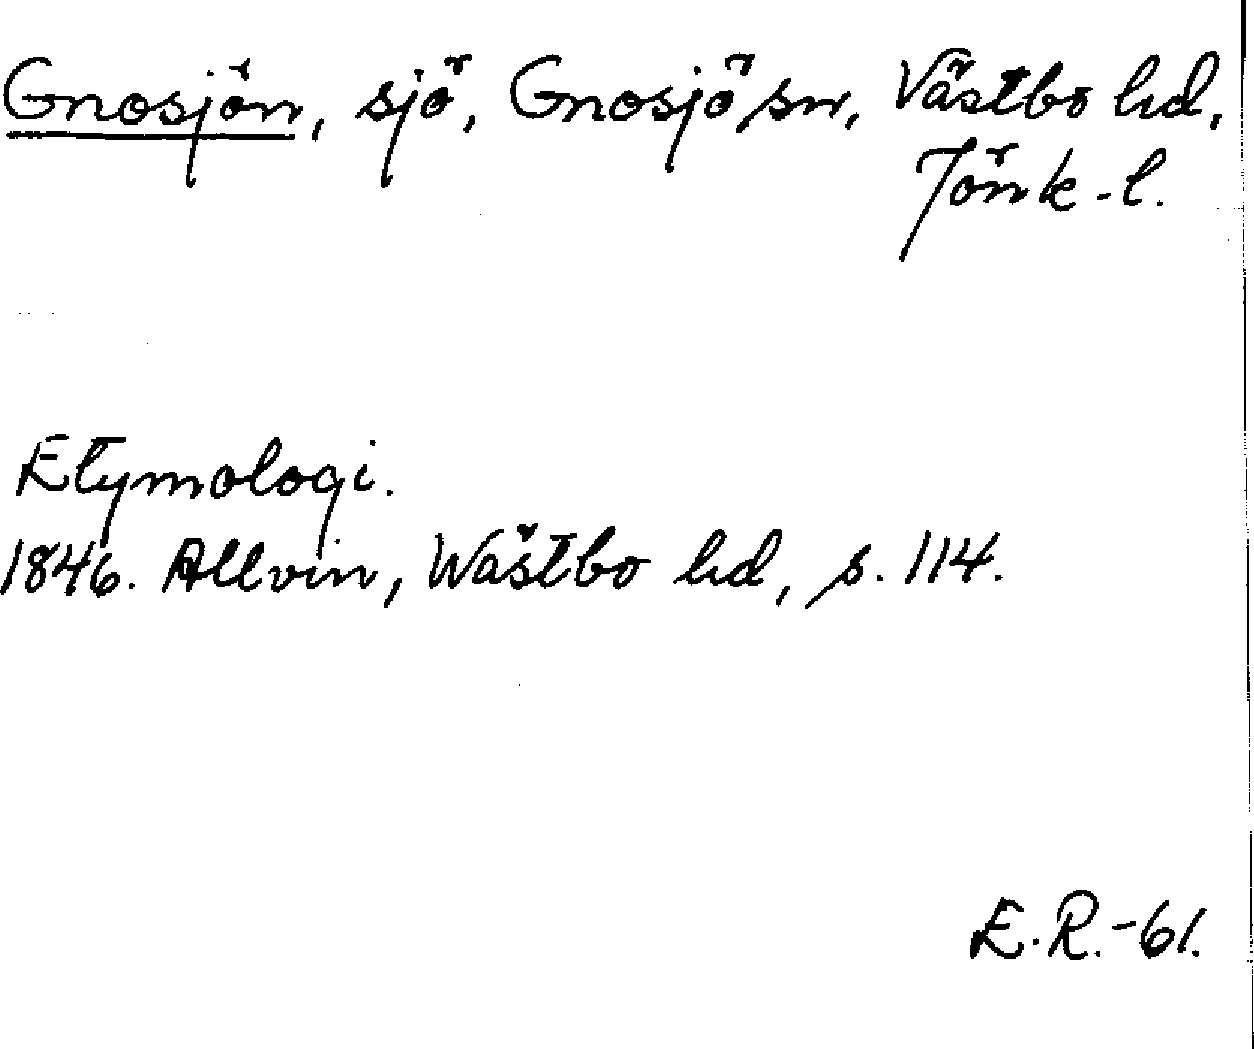 Gnosjön, sjö, Gnosjö sn, Västbo hd,
Jönk.-l.
Etymologi.
1846. Allvin, Wästbo hd, s. 114.
E.R.-61.